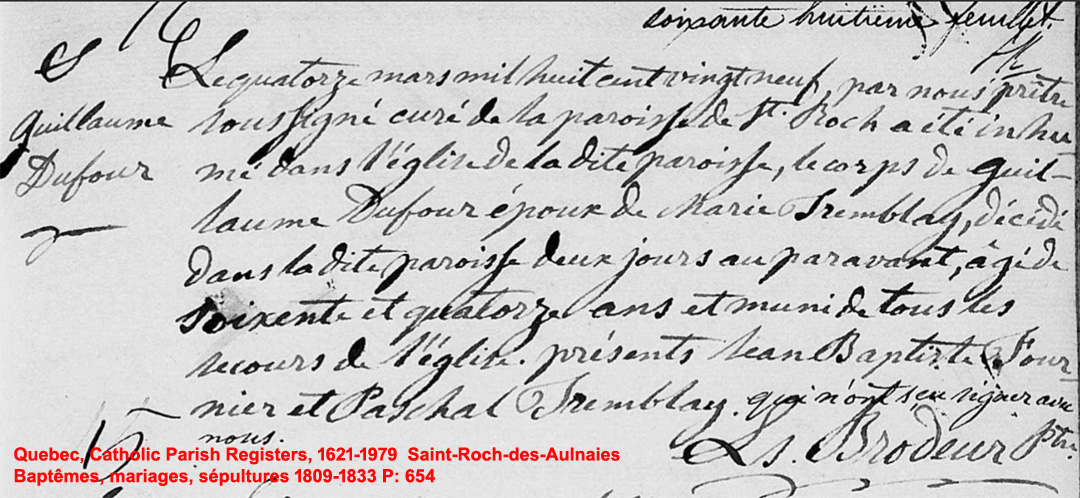 soixante huitième feuillet.
S
Guillaume
Dufour
Le quatorze mars mil huit cent vingt neuf, par nous prêtre
soussigné curé de la paroisse de St. Roch a été inhu
mé dans l'église de la dite paroisse, le corps de Guil-
laume Dufour époux de Marie Tremblay, décédé
dans la dite paroisse deux jours au paravant, âgé de
soixente et quatorze ans et muni de tous les
secours de l'église. présents Jean Baptiste Four
nier et Paschal Tremblay. qui n'ont seu signer avec
nous.
Ls. Brodeur Ptre.
Quebec, Catholic Parish Registers, 1621-1979 Saint-Roch-des-Aulnaies
Baptêmes, mariages, sépultures 1809-1833 P: 654